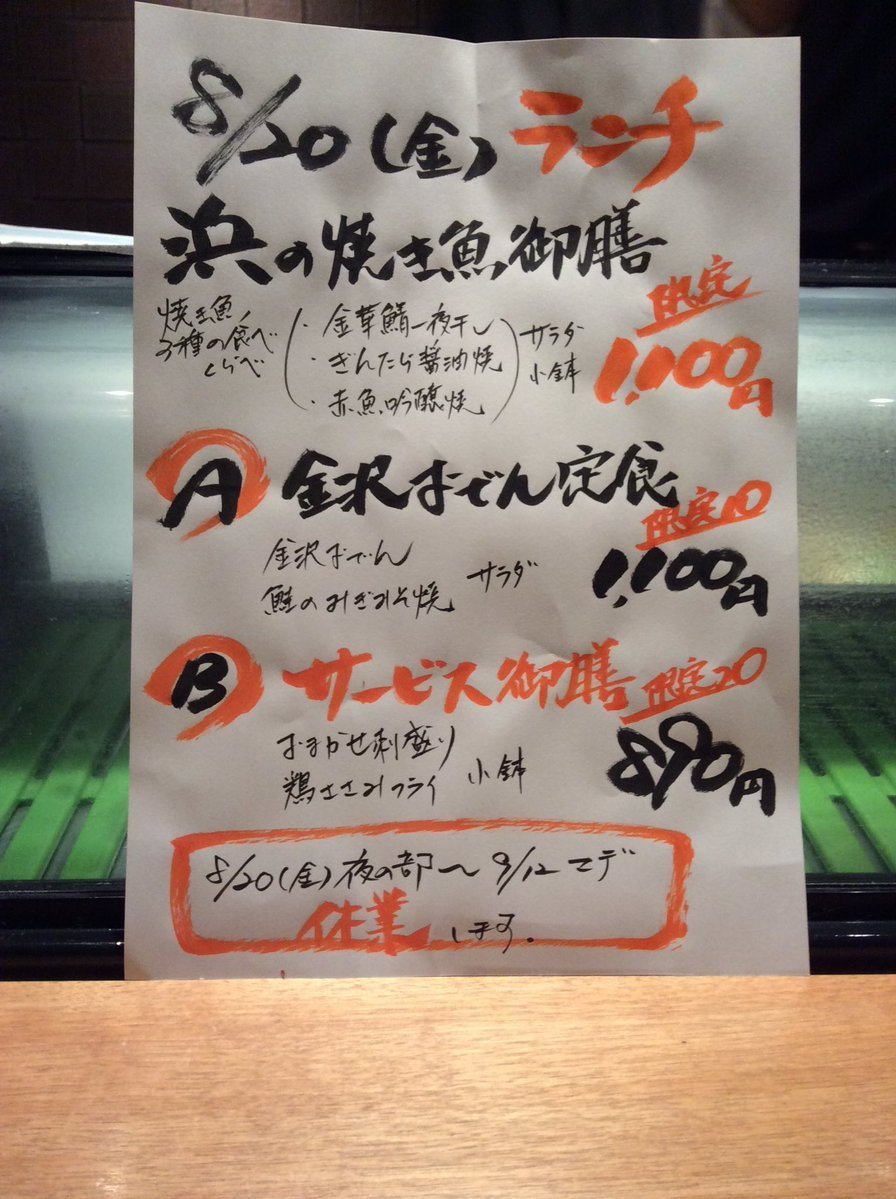 8/20(金) ランチ
浜の焼き魚御膳
限定
焼き魚
3種の食べ
くらべ
・金華鯖一夜干し
・ぎんだら醤油焼
・赤魚吟醸焼
サラダ
小鉢
1,100円
A 金沢おでん定食
限定10
金沢おでん
鮭のねぎみそ焼
サラダ
1,100円
B サービス御膳
限定20
おまかせ刺盛り
鶏ささみフライ
小鉢
890円
8/20(金)夜の部〜9/12マデ
休業します。